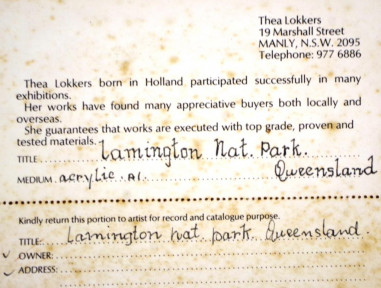 Thea Lokkers
19 Marshall Street
MANLY, N.S.W. 2095
Telephone: 977 6886
Thea Lokkers born in Holland participated successfully in many
exhibitions.
Her works have found many appreciative buyers both locally and
overseas.
She guarantees that works are executed with top grade, proven and
tested materials.
TITLE Lamington Nat. Park.
MEDIUM. acrylic. A1. Queensland
Kindly return this portion to artist for record and catalogue purpose.
TITLE: Lamington nat. park, Queensland.
OWNER:
ADDRESS: